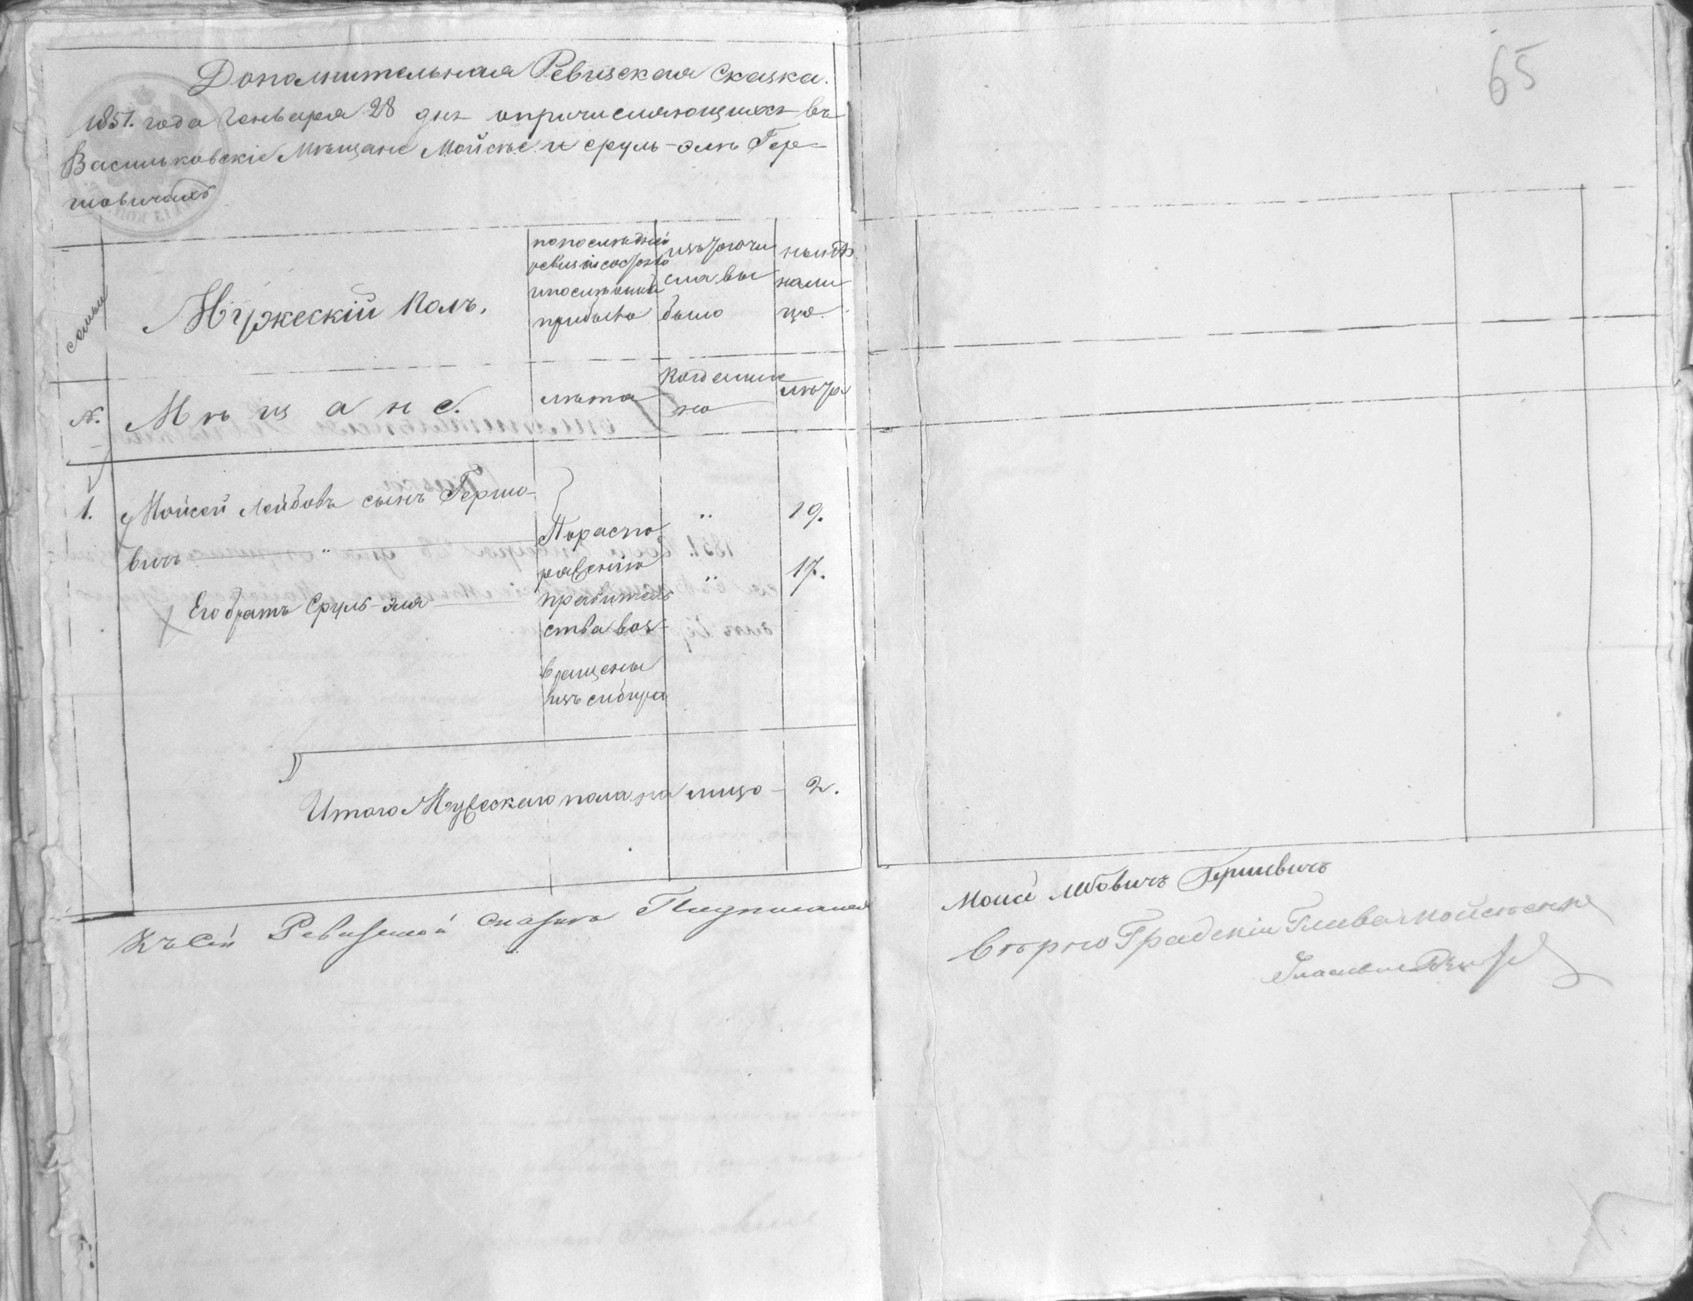 65
Дополнительная Ревизская Сказка.
1851. года Генваря 28 дня опричисляющихся въ
Васильковскіе Мѣщане Мойсѣе и Сруль-Элѣ Гер-
шовичахъ
семьи
Мужескій Полъ.
попослѣдней
ревизіи состояло
ипослѣ оной
прибыло
изъ того чи
сла вы
было
нынѣ
нали
цо.
№.
Мѣщане.
лѣта
когда имян
но
лѣта
1.
Мойсей Лейбовъ сынъ Гершо-
вичъ
19.
Его братъ Сруль-Эля
17.
По распо
ряженію
правитель
ства воз-
вращены
изъ сибири
Итого Мужескаго пола на лицо - 2.
Къ сей Ревизской Сказкѣ Подписался
Моисе Лебовичъ Гершевичъ
Вѣрно Градскій Глава Мойсѣенко
Гласные